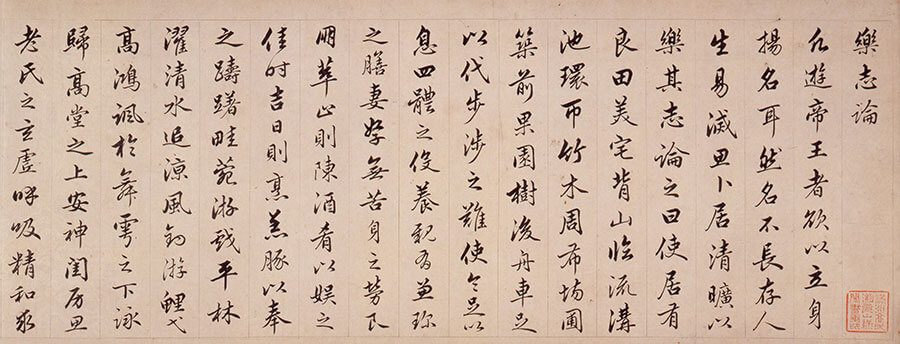 樂志論
凡遊帝王者欲以立身
揚名耳然名不長存人
生易滅思卜居清曠以
樂其志論之曰使居有
良田美宅背山臨流溝
池環帀竹木周布場圃
築前果園樹後舟車足
以代步涉之難使令足以
息四體之役養親有兼珍
之膳妻孥無苦身之勞良
朋萃止則陳酒肴以娛之
佳時吉日則烹羔豚以奉
之躊躇畦菀游戲平林
濯清水追涼風釣游鯉弋
高鴻諷於舞雩之下詠
歸高堂之上安神閨房思
老氏之玄虛呼吸精和求